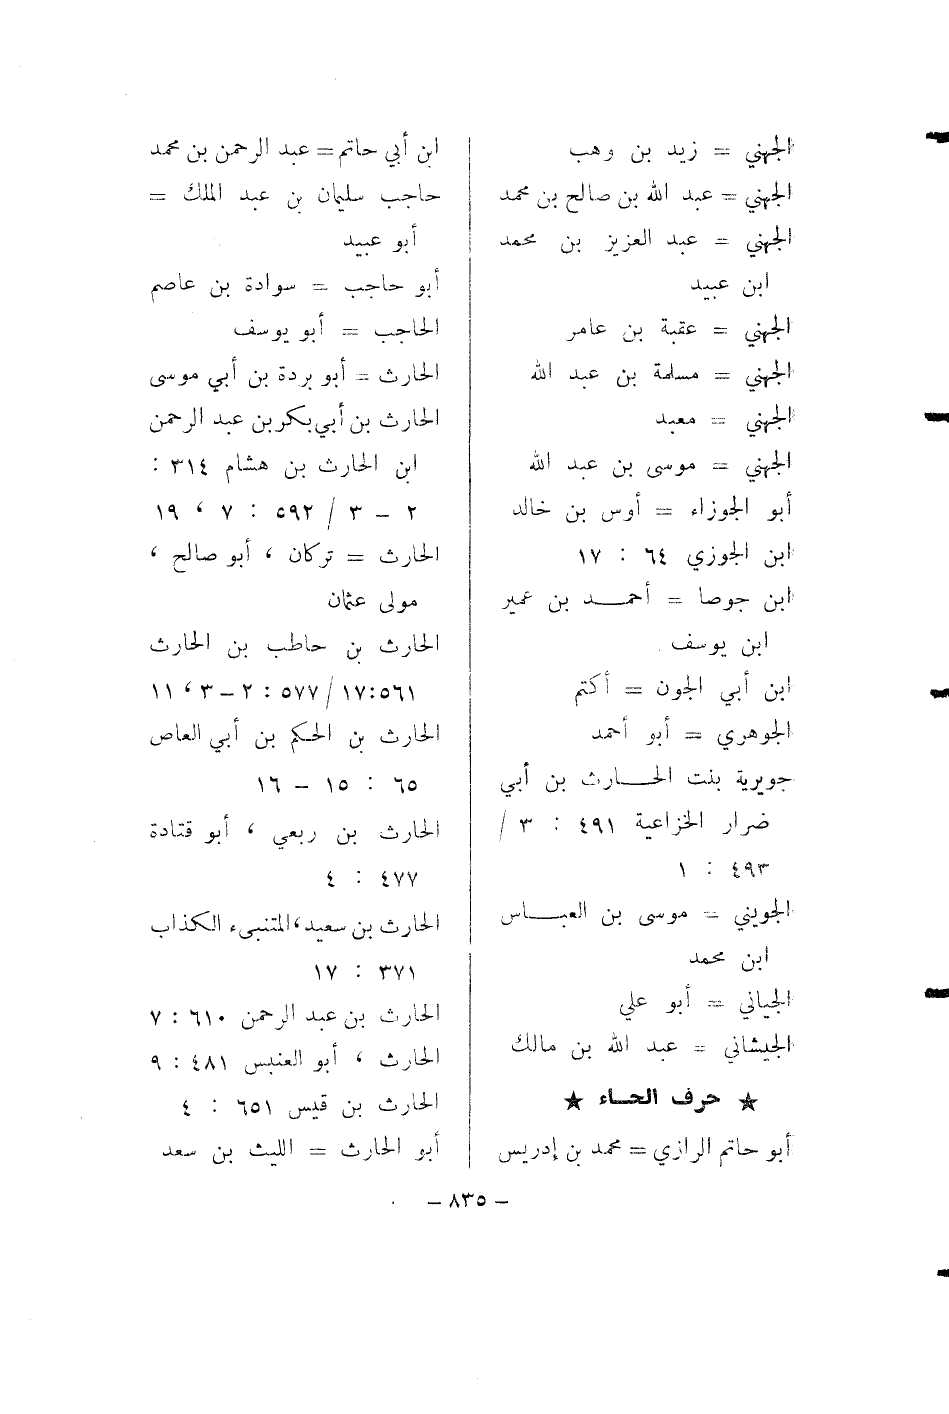 الجهني = زيد بن وهب
الجهني = عبد الله بن صالح بن محمد
الجهني = عبد العزيز بن محمد
ابن عبيد
الجهني = عقبة بن عامر
الجهني = مسلمة بن عبد الله
الجهني = معبد
الجهني = موسى بن عبد الله
أبو الجوزاء = أوس بن خالد
ابن الجوزي ٦٤ : ١٧
ابن جوصا = أحمـــد بن عمير
ابن يوسف
ابن أبي الجون = أكتم
الجوهري = أبو أحمد
جويرية بنت الحـــارث بن أبي
ضرار الخزاعية ٤٩١ : ٣ /
٤٩٣ : ١
الجويني = موسى بن العبـــاس
ابن محمد
الجياني = أبو علي
الجيشاني = عبد الله بن مالك
★ حرف الحــاء ★
أبو حاتم الرازي = محمد بن إدريس
ابن أبي حاتم = عبد الرحمن بن محمد
حاجب سليمان بن عبد الملك =
أبو عبيد
أبو حاجب = سوادة بن عاصم
الحاجب = أبو يوسف
الحارث = أبو بردة بن أبي موسى
الحارث بن أبي بكر بن عبد الرحمن
ابن الحارث بن هشام ٣١٤ :
٢ - ٣ / ٥٩٢ : ٧ ، ١٩
الحارث = تركان ، أبو صالح ،
مولى عثمان
الحارث بن حاطب بن الحارث
٥٦١:١٧/ ٥٧٧ : ٢ - ٣، ١١
الحارث بن الحكم بن أبي العاص
٦٥ : ١٥ - ١٦
الحارث بن ربعي ، أبو قتادة
٤٧٧ : ٤
الحارث بن سعيد، المتنبىء الكذاب
٣٧١ : ١٧
الحارث بن عبد الرحمن ٦١٠ : ٧
الحارث ، أبو العنبس ٤٨١ : ٩
الحارث بن قيس ٦٥١ : ٤
أبو الحارث = الليث بن سعد
- ٨٣٥ -